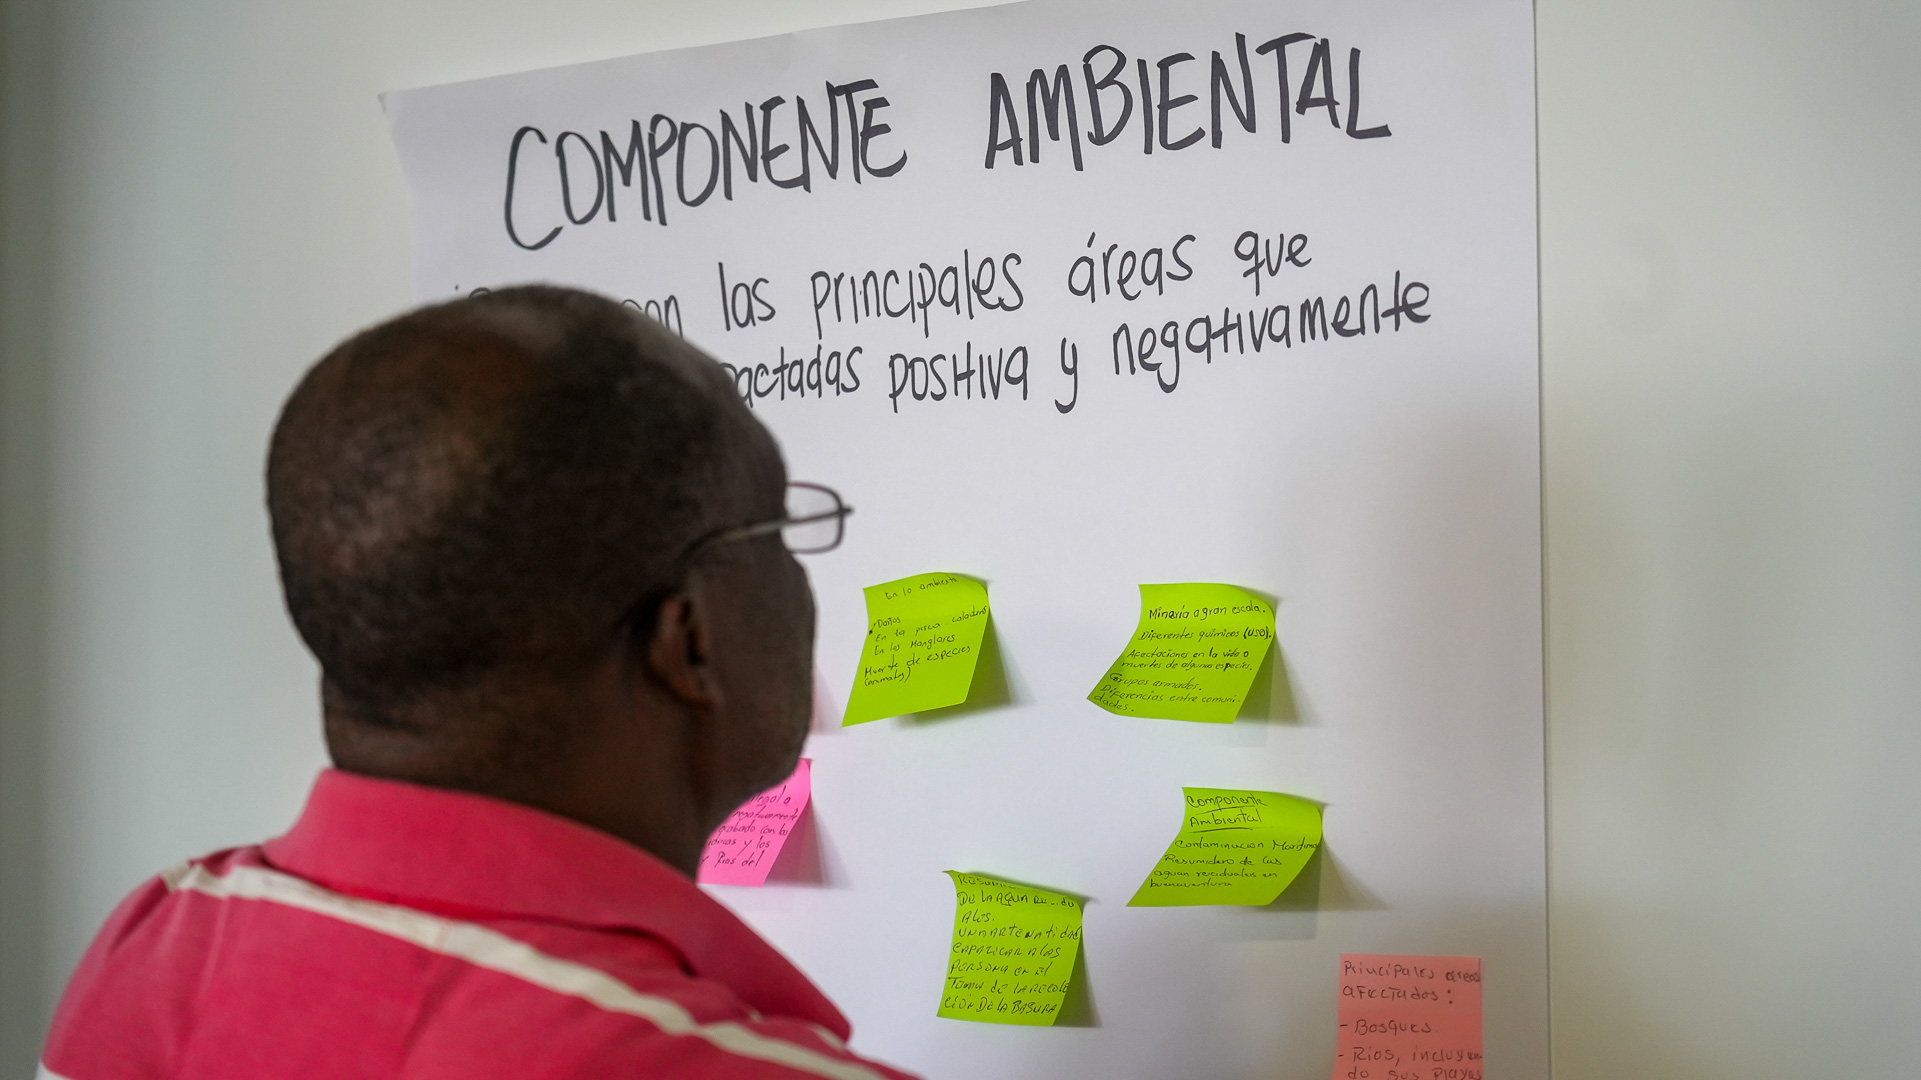 COMPONENTE AMBIENTAL
las principales áreas que
positiva y negativamente
En lo ambiental
Daños
En la pesca
En los Manglares
Muerte de especies
Mineria a gran escala.
Diferentes quimicos (USO).
Afectaciones en la vida o
muertes de algunas especies.
Grupos armados.
Diferencias entre comuni-
dades.
negativamente
y los
Rios del
Componente
Ambiental
Contaminacion Maritima
Resumidero de las
aguas residuales en
buenaventura
DE LA AGUA
ALES.
CAPAZICAR A LOS
PERSONA EN El
TEMA DE LA RECOLE
CIÓN DE LA BASURA
Principales areas
AFECTADOS:
- Bosques
- Ríos, incluyen-
do sus Playas